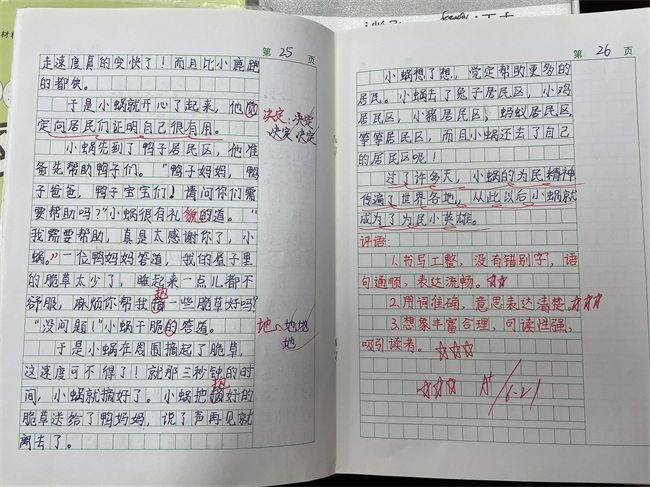 第 25 页
走速度真的变快了！而且比小鹿跑
的都快。
于是小蜗就开心了起来，他
定向居民们证明自己很有用。
决定：决定
决定 决定
小蜗先到了鸭子居民区，他准
备先帮助鸭子们。“鸭子妈妈，鸭
子爸爸，鸭子宝宝们！请问你们需
要帮助吗？”小蜗很有礼貌的道。“
我需要帮助，真是太感谢你了，小
蜗。”一位鸭妈妈答道，我的屋子里
的脆草太少了，睡起来一点儿都不
舒服，麻烦你帮我摘一些脆草好吗？
“没问题！”小蜗干脆的答道。
地：地地
地
于是小蜗在周围摘起了脆草，
这速度可不得了！就那三秒钟的时
间，小蜗就摘好了。小蜗把摘好的
脆草送给了鸭妈妈，说了声再见就
离去了。
第 26 页
小蜗想了想，觉定帮助更多的
居民。小蜗去了兔子居民区，小鸡
居民区，小猪居民区，蚂蚁居民区，
等等居民区，而且小蜗还去了自己
的居民区呢！
过了许多天，小蜗的为民精神
传遍了世界各地，从此以后小蜗就
成为了为民小英雄。
评语：
1.书写工整，没有错别字，语
句通顺，表达流畅。☆☆
2.用词准确，意思表达清楚。☆☆☆
3.想象丰富合理，可读性强，
吸引读者。☆☆☆
☆☆☆ A+ 6-21